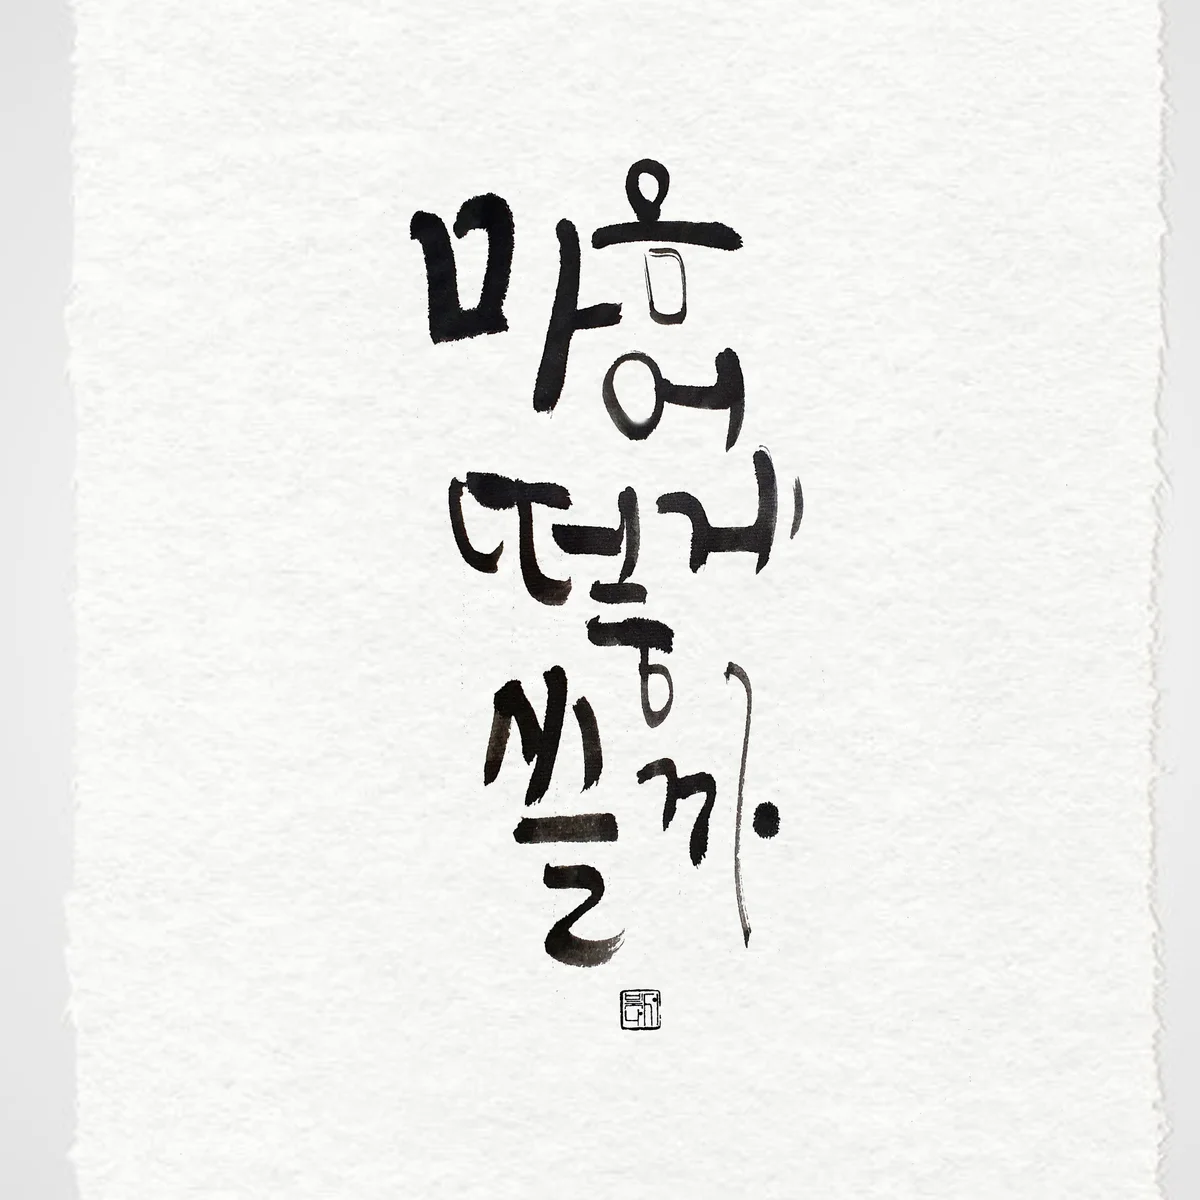 마음
어
떻게
쓸까